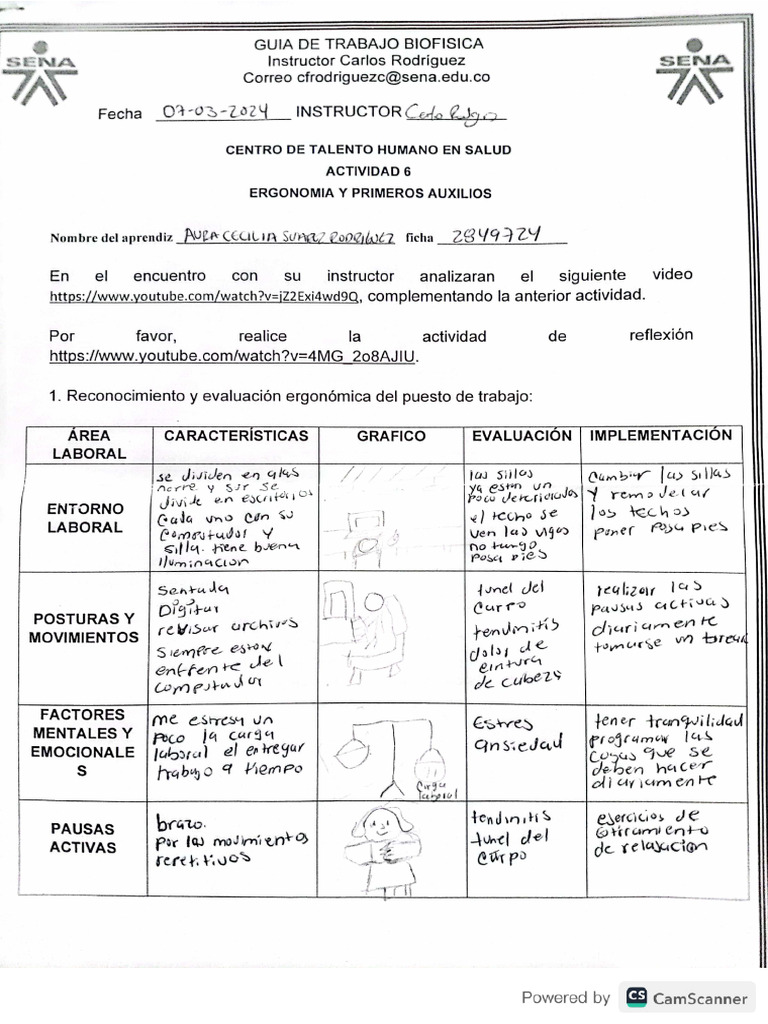 SENA
GUIA DE TRABAJO BIOFISICA
Instructor Carlos Rodríguez
Correo cfrodriguezc@sena.edu.co
SENA
Fecha 07-03-2024 INSTRUCTOR
CENTRO DE TALENTO HUMANO EN SALUD
ACTIVIDAD 6
ERGONOMIA Y PRIMEROS AUXILIOS
Nombre del aprendiz AURA CECILIA SUAREZ RODRIGUEZ ficha 2849724
En el encuentro con su instructor analizaran el siguiente video
https://www.youtube.com/watch?v=jZ2Exi4wd9Q, complementando la anterior actividad.
Por favor, realice la actividad de reflexión
https://www.youtube.com/watch?v=4MG_2o8AJIU.
1. Reconocimiento y evaluación ergonómica del puesto de trabajo:
ÁREA
LABORAL
CARACTERÍSTICAS
GRAFICO
EVALUACIÓN
IMPLEMENTACIÓN
ENTORNO
LABORAL
se dividen en alas
norte y sur se
divide en escritorios
Cada uno con su
Computador y
silla. tiene buena
iluminacion
las sillas
ya estan un
poco deterioradas
el techo se
ven las vigas
no tengo
posa pies
Cambiar las sillas
y remodelar
los techos
poner posa pies
POSTURAS Y
MOVIMIENTOS
Sentada
Digitar
revisar archivos
Siempre estoy
enfrente del
computador
tunel del
Carpo
tendinitis
dolor de
cintura
de cabeza
realizar las
pausas activas
diariamente
tomarse un
FACTORES
MENTALES Y
EMOCIONALE
S
me estresa un
poco la carga
laboral el entregar
trabajo a tiempo
Carga
laboral
Estres
ansiedad
tener tranquilidad
programar las
cosas que se
deben hacer
diariamente
PAUSAS
ACTIVAS
brazo.
Por los movimientos
repetitivos
tendinitis
tunel del
carpo
ejercicios de
estiramiento
de relajacion
Powered by CS CamScanner